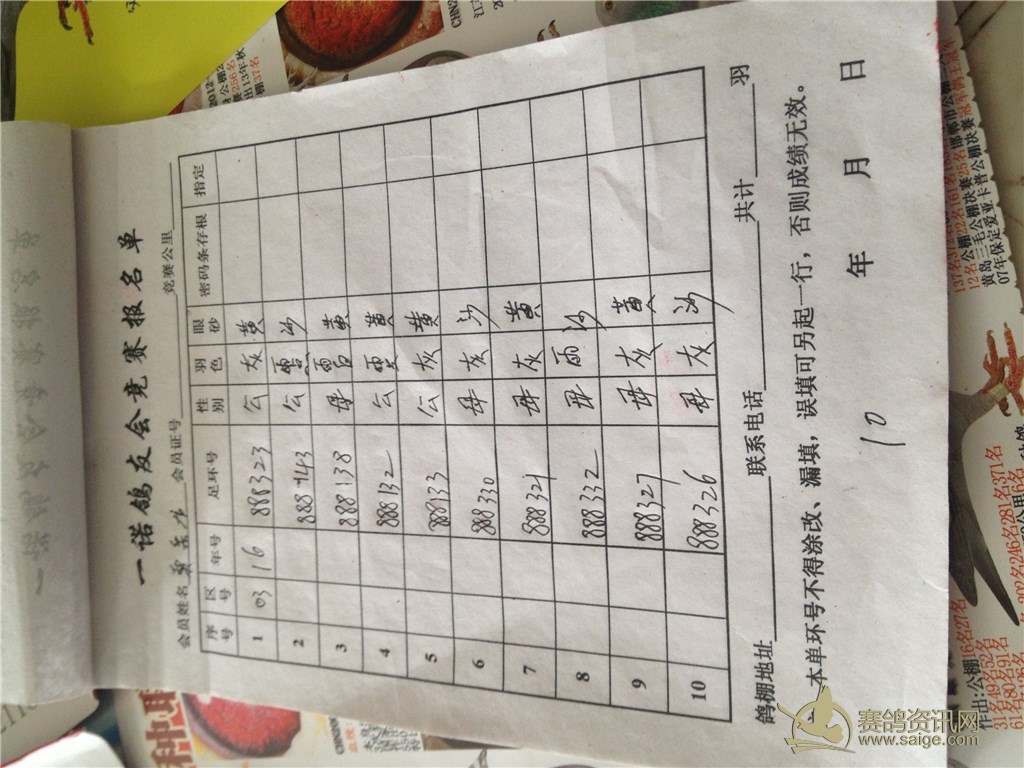 一诺鸽友会竞赛报名单
会员姓名 会员证号 竞赛公里
序号 区号 年号 足环号 性别 羽色 眼砂 密码条存根 指定
1 03 16 888323 公 灰 黄
2 888743 公 雨 沙
3 888138 母 雨 黄
4 888132 公 黄
5 888133 公 灰 黄
6 888330 母 灰 沙
7 888321 母 灰 黄
8 888332 母 雨 沙
9 888327 母 灰 黄
10 888326 母 灰 沙
鸽棚地址 联系电话 共计 羽
本单环号不得涂改、漏填，误填可另起一行，否则成绩无效。
10
年 月 日
赛鸽资讯网
www.saige.com